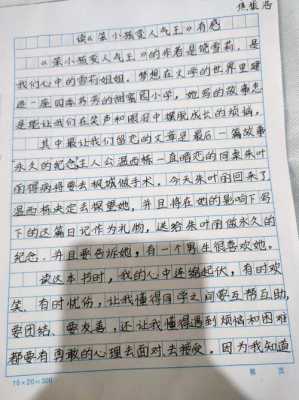 焦依浩
读《笨小孩变人气王》有感
《笨小孩变人气王》的作者是饶雪莉，是
我们心中的雪莉姐姐，梦想在文学的世界里建
造一座四季芬芳的甜蜜园小学，她写的故事总
是能让我们在笑声和眼泪中摆脱成长的烦恼。
其中最让我们留恋的文章是最后一篇故事
永久的纪念主人公温西栋一直暗恋的同桌朱叶
雨得病将要去枫城做手术，今天朱叶雨回来了，
温西栋决定去探望她，并且将在她的影响下写
下的这篇日记作为礼物，送给朱叶雨做永久的
纪念，并且要告诉她，有一个男生很喜欢她。
读这本书时，我的心中连绵起伏，有时欢
笑、有时忧伤，让我懂得同学之间要互帮互助，
要团结、要友善，还让我懂得遇到烦恼和困难
都要有勇敢的心理去面对、去接受，因为我知道
15×20=300
第 页